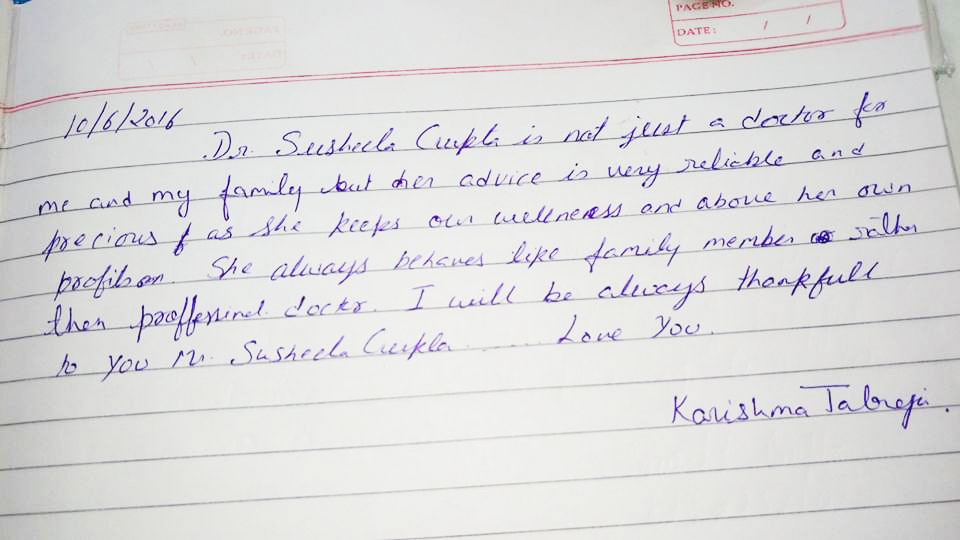 PAGE NO.
DATE: / /
10/6/2016
Dr. Susheela Gupta is not just a doctor for
me and my family but her advice is very reliable and
precious as she keeps our wellneress and above her own
She always behaves like family member rather
then proffessinal doctr. I will be always thankfull
to you Dr. Susheela Gupta ....... Love You.
Karishma Tabreji.